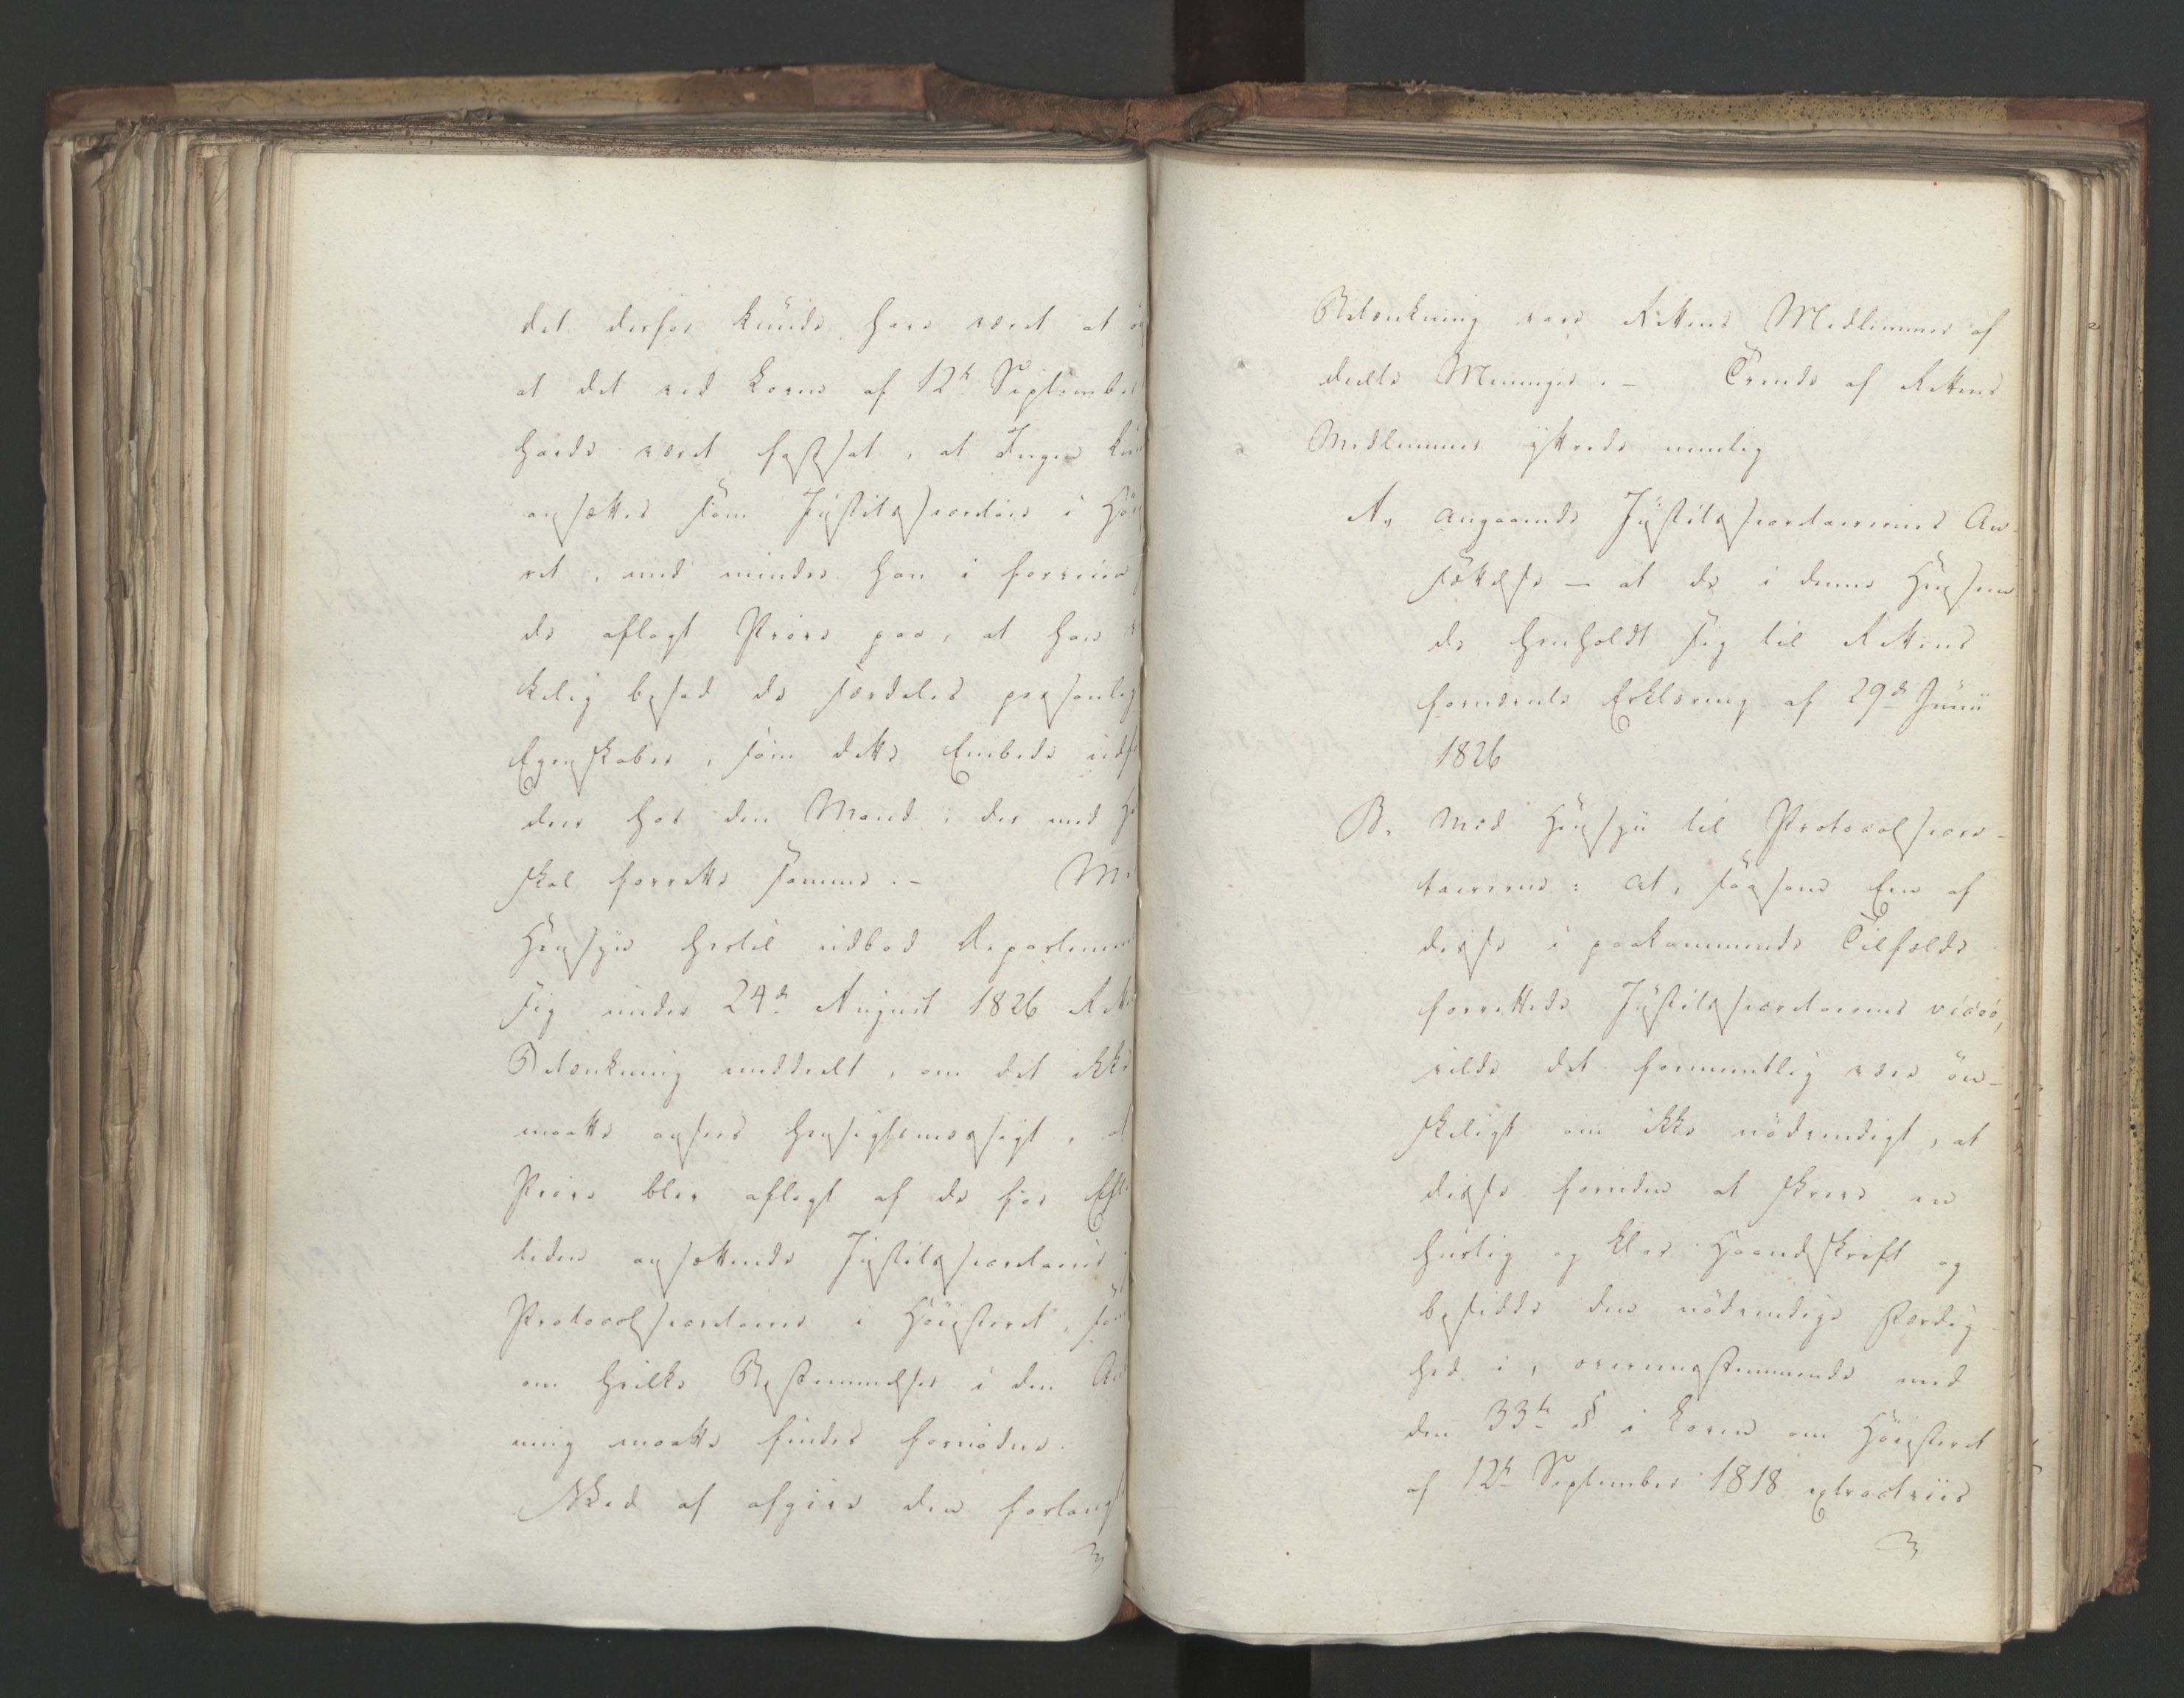 det derfor kunde have været at ö
at det ved Loven af 12te September
havde været fastsat, at Ingen kun
ansættes som Justitssecretair i Höi
ret, med mindre han i forveien
de aflagt Pröve paa, at han
kelig besad de særdeles personlig
Egenskaber, som dette Embede udfo
drer hos den Mand, der med He
skal forrette samme.- M
Hensyn hertil udbad Departemen
sig under 24de August 1826 Rett
Betænkning meddeelt, om det ikke
maatte ansees hensigtsmæssigt, at
Pröve blev aflagt af de for Eft
tiden ansættende Justitssecretairer
Protocolsecretairer i Höiesteret, sam
om hvilke Bestemmelser i den An
ning maatte findes fornödne.
Med at afgive den forlangt
Betænkning vare Rettens Medlemmer af
deelte Meninger.- Trende af Rettens
Medlemmer yttrede nemlig
A, angaaende Justitssecretairernes An-
sættelse - at de i denne Henseen
de henholdt sig til Rettens
fornævnte Erklæring af 29de Junii
1826
B. Med Hensyn til Protocolsecre-
tairerne: at, saasom Een af
disse i paakommende Tilfælde
forrettede Justitssecretairens vices,
vilde det formeentlig være ön-
skeligt om ikke nödvendigt, at
disse foruden at skrive en
hurtig og klar Haandskrift og
besidde den nödvendige Færdig-
hed i, overeensstemmende med
den 33te § i Loven om Höiesteret
af 12te September 1818 extractviis